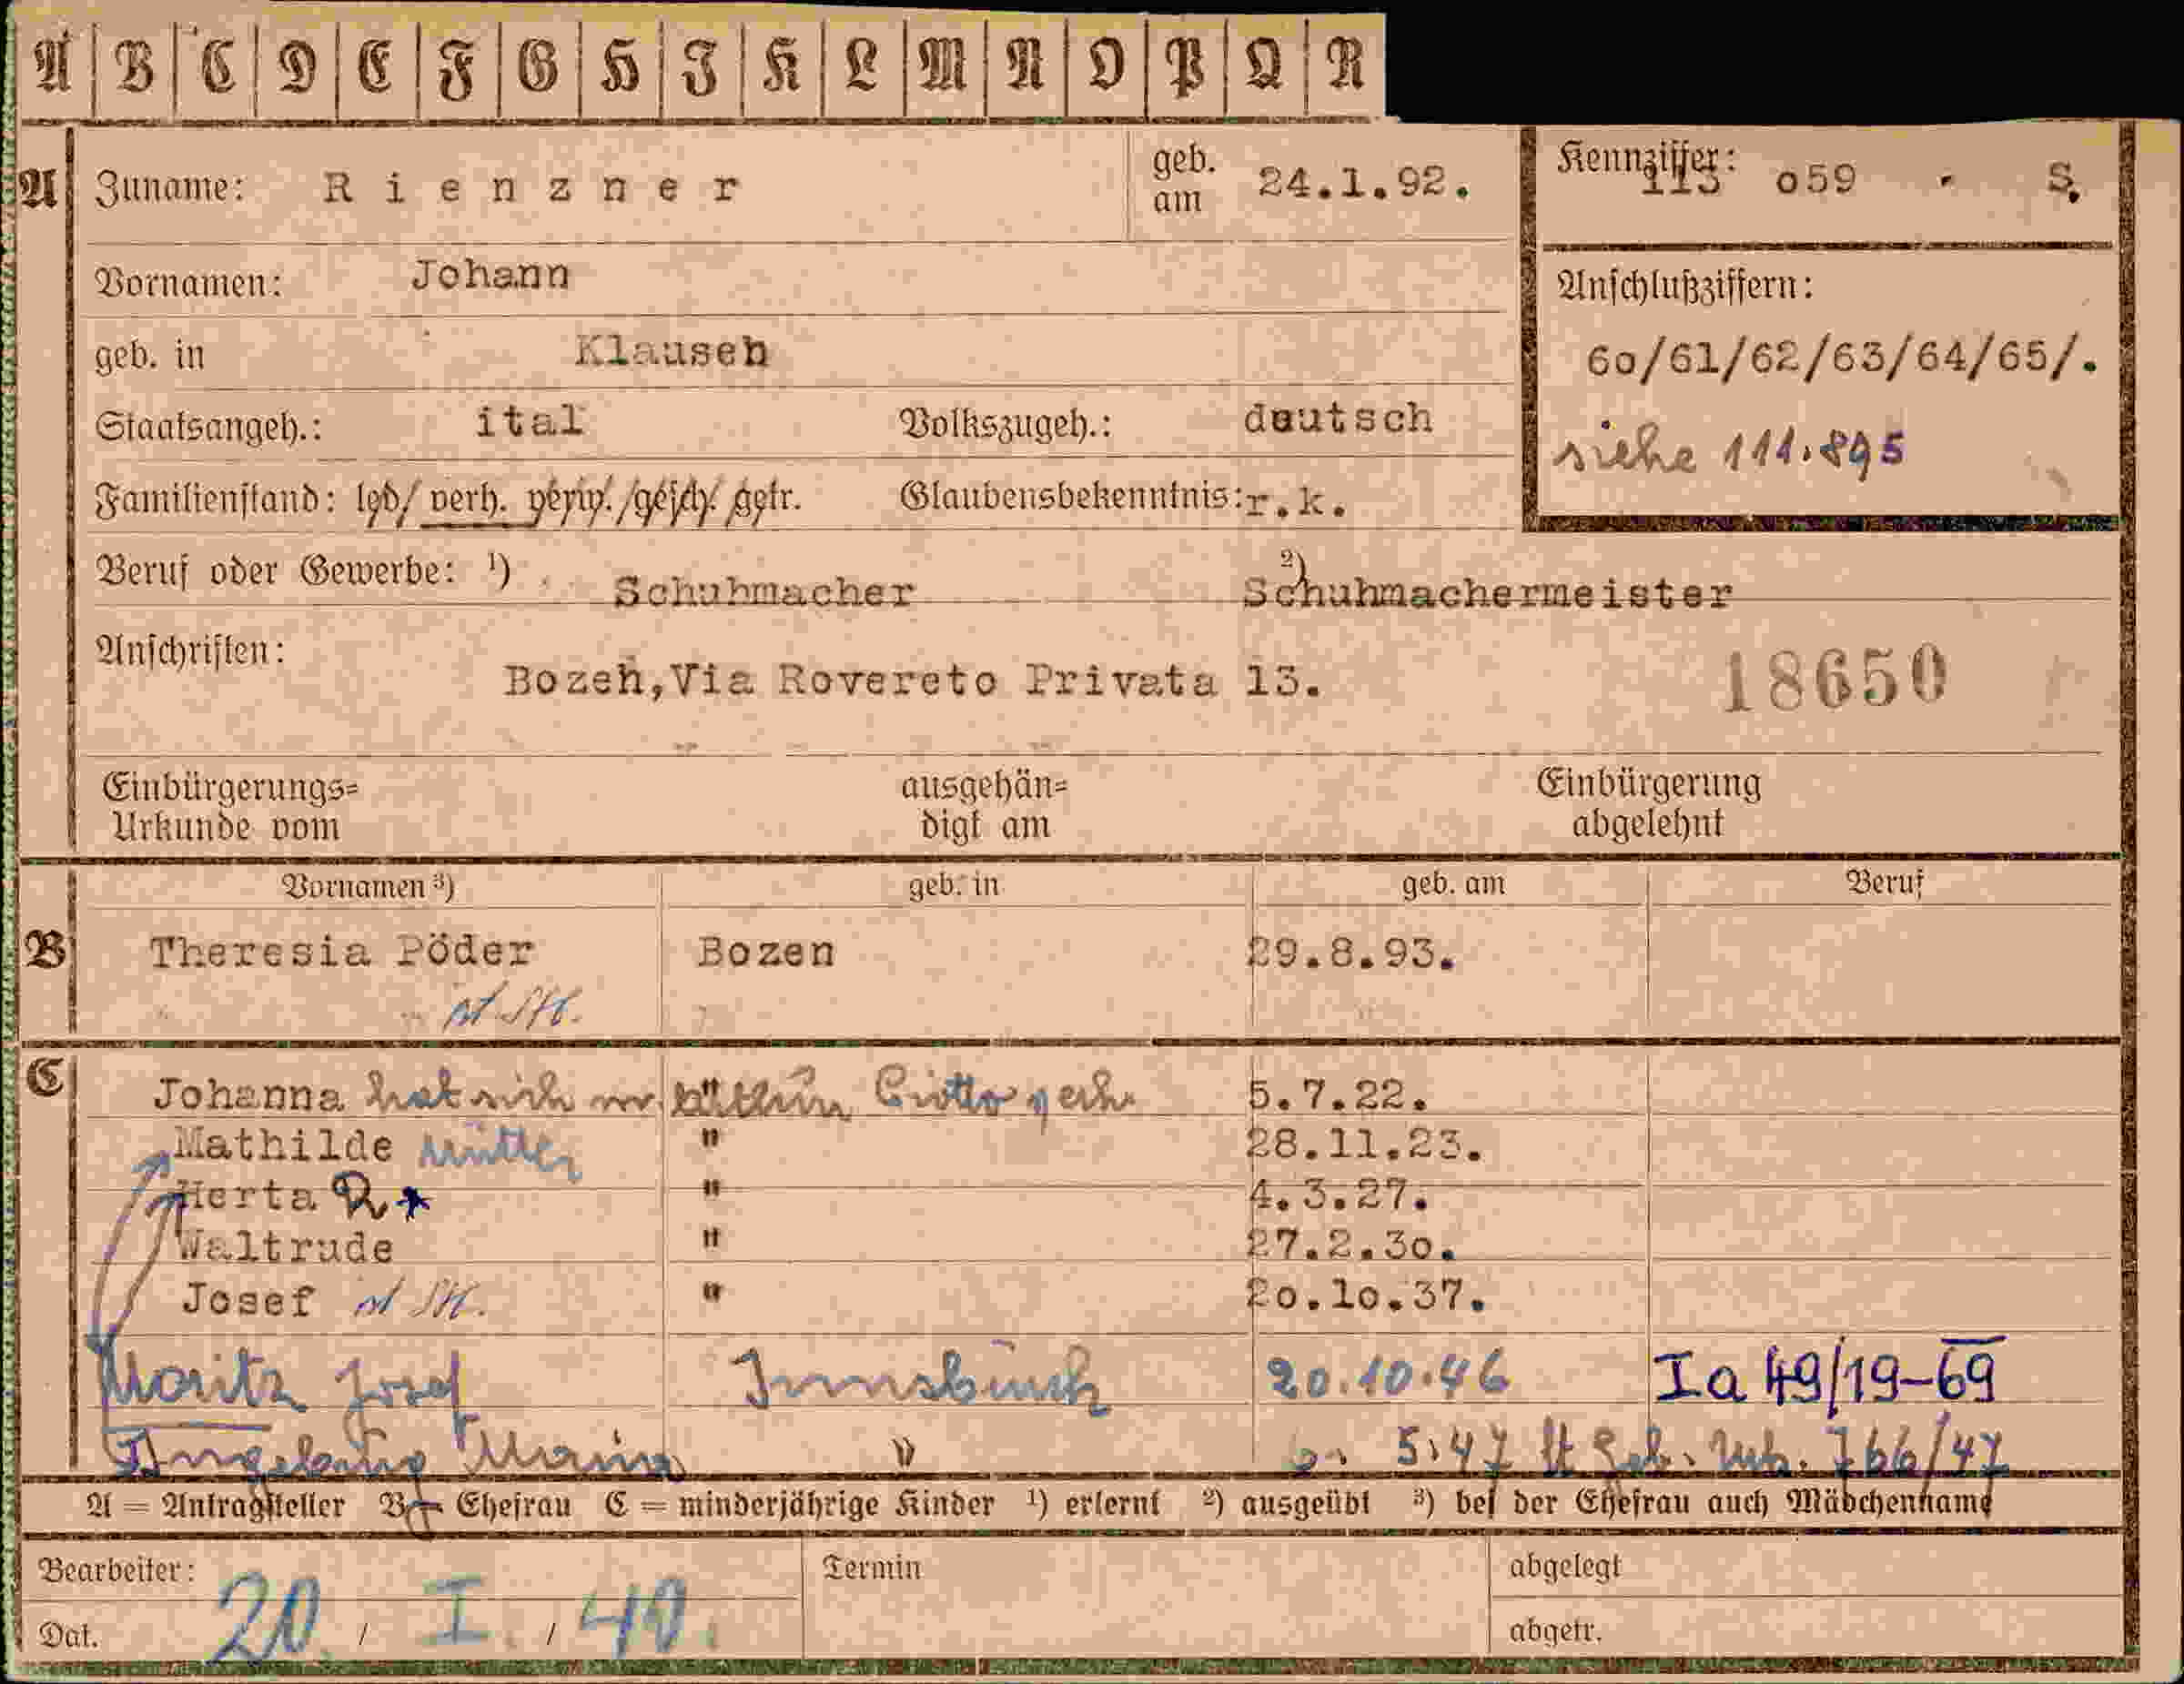 A B C D E F G H I K L M N O P Q R
A Zuname: Rienzner geb. am 24.1.92. Kennziffer: 113 o59 - S.
Vornamen: Johann Anschlußziffern:
geb. in Klausen 60/61/62/63/64/65/.
Staatsangeh.: ital Volkszugeh.: deutsch siehe 111.895
Familienstand: led/ verh. verw./gesch/ getr. Glaubensbekenntnis: r.k.
Beruf oder Gewerbe: ¹) Schuhmacher ²) Schuhmachermeister
Anschriften:
Bozen, Via Rovereto Privata 13. 18650
Einbürgerungs= ausgehän= Einbürgerung
Urkunde vom digt am abgelehnt
Vornamen ³) geb. in geb. am Beruf
B Theresia Pöder Bozen 29.8.93.
C Johanna hat sich " 5.7.22.
Mathilde " 28.11.23.
Herta R " 4.3.27.
Waltrude " 27.2.30.
Josef " 20.10.37.
Moritz Josef Innsbruck 20.10.46 Ia 49/19-69
Ingeborg Maria " 5.47 lt Geb. Urk. 766/47
A = Antragsteller B = Ehefrau C = minderjährige Kinder ¹) erlernt ²) ausgeübt ³) bei der Ehefrau auch Mädchenname
Bearbeiter: Termin abgelegt
Dat. 20. / I. / 40. abgetr.